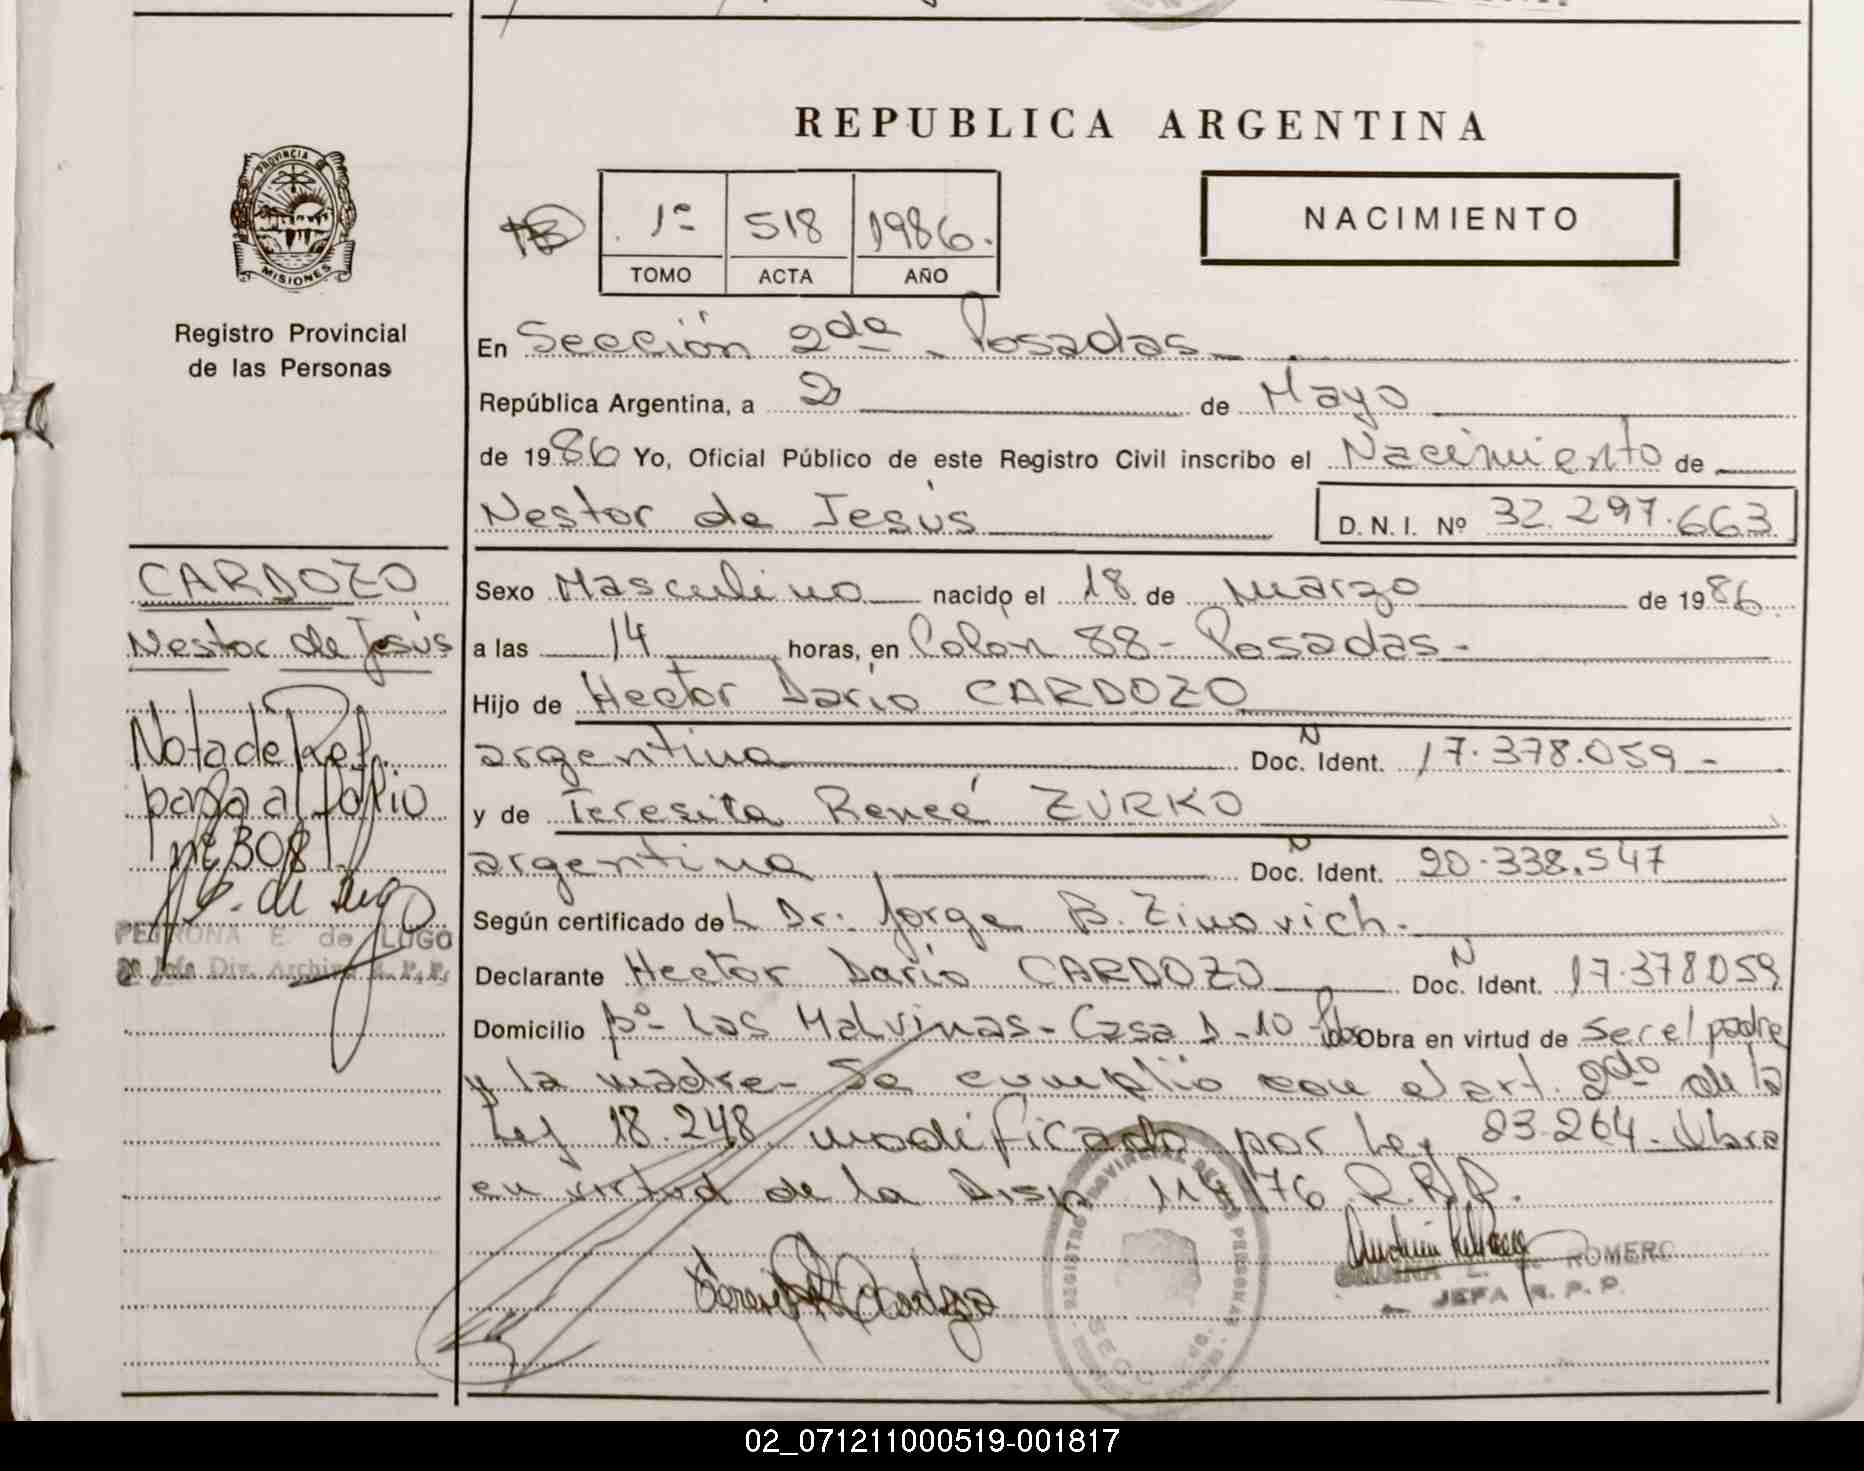 REPUBLICA ARGENTINA
PROVINCIA DE
MISIONES
Registro Provincial
de las Personas
1º 518 1986.
TOMO ACTA AÑO
NACIMIENTO
En Sección 2da - Posadas -
República Argentina, a 2 de Mayo
de 1986 Yo, Oficial Público de este Registro Civil inscribo el Nacimiento de
Nestor de Jesús D. N. I. Nº 32.297.663
CARDOZO
Nestor de Jesús
Nota de Ref.
pasa al folio
nº 308
PETRONA E. de LUGO
Jefa Div. Archivo R. P. P.
Sexo Masculino nacido el 18 de Marzo de 1986.
a las 14 horas, en Colón 88 - Posadas -
Hijo de Hector Dario CARDOZO
argentino Doc. N Ident. 17.378.059 -
y de Teresita Reneé ZURKO
argentina Doc. N Ident. 20.338.547
Según certificado del Dr. Jorge B. Zinovich -
Declarante Hector Dario CARDOZO Doc. N Ident. 17.378059
Domicilio Bº Las Malvinas - Casa D - 10 - Pdas Obra en virtud de ser el padre
y la madre - Se cumplió con el art. 2do de la
Ley 18.248 modificado por Ley 23.264 - Obra
en virtud de la Disp. 114/76 R.P.P.
ROMERO
JEFA R. P. P.
02_071211000519-001817